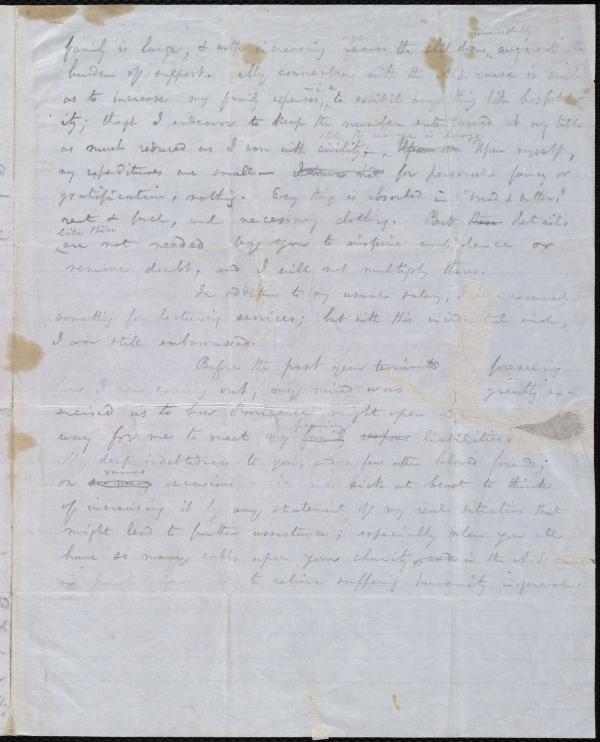 family is large, & with increasing years the children augment the
burden of support. My connection with the A. S. cause is such
as to increase my family expenses, to exhibit any thing like hospital-
ity; though I endeavor to keep the number entertained at my table
as much reduced as I can with civility. Upon myself,
my expenditures are small — for personal fancy or
gratification, nothing. Every thing is absorbed in "bread & butter,"
rent & fuel, and necessary clothing. But details
like these
are not needed by you to inspire confidence or
remove doubt, and I will not multiply them.
In addition to my usual salary, I have received
something for lecturing services; but with this incidental aid,
I was still embarrassed.
Before the past year terminated foreseeing
how I was coming out, my mind was greatly ex-
ercised as to how Providence might open a
way for me to meet my family liabilities.
My deep indebtedness to you, and a few other beloved friends,
on various occasions me sick at heart to think
of increasing it by any statement of my real situation that
might lead to further assistance; especially when you all
have so many calls upon your charity, and in the A. S. cause
in to relieve suffering humanity in general.